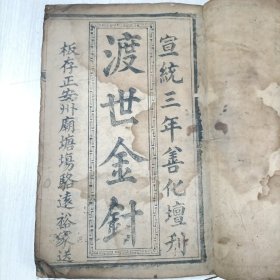 宣統三年善化壇刊
渡世金針
板存正安州廟塘塲駱遠裕家送